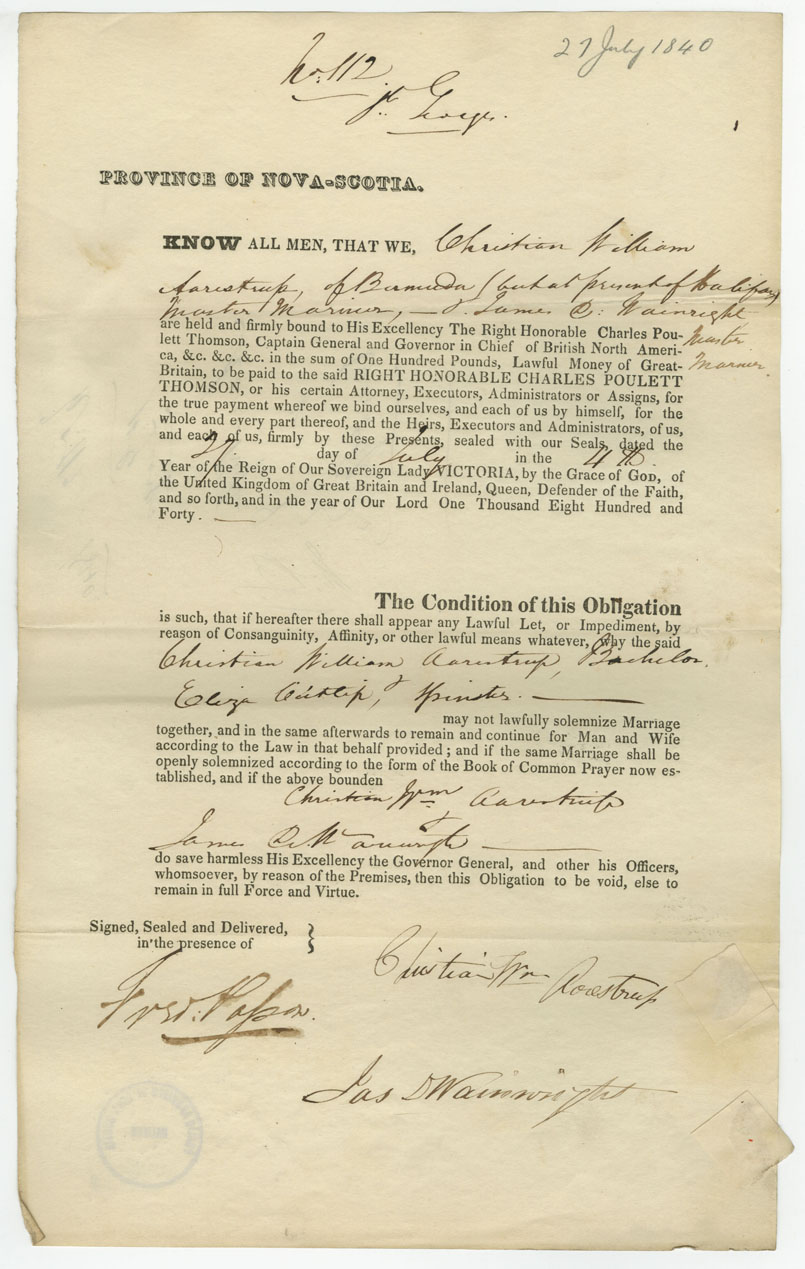 27 July 1840
No: 112
St. Georges.
PROVINCE OF NOVA-SCOTIA.
KNOW ALL MEN, THAT WE, Christian William
Aarestrup, of Bermuda (but at present of Halifax)
Master Mariner, — & James D: Wainright
Master
Mariner.
are held and firmly bound to His Excellency The Right Honorable Charles Pou-
lett Thomson, Captain General and Governor in Chief of British North Ameri-
ca, &c. &c. &c. in the sum of One Hundred Pounds, Lawful Money of Great-
Britain, to be paid to the said RIGHT HONORABLE CHARLES POULETT
THOMSON, or his certain Attorney, Executors, Administrators or Assigns, for
the true payment whereof we bind ourselves, and each of us by himself, for the
whole and every part thereof, and the Heirs, Executors and Administrators, of us,
and each of us, firmly by these Presents, sealed with our Seals, dated the
27. day of July in the 4th.
Year of the Reign of Our Sovereign Lady VICTORIA, by the Grace of GOD, of
the United Kingdom of Great Britain and Ireland, Queen, Defender of the Faith,
and so forth, and in the year of Our Lord One Thousand Eight Hundred and
Forty. —
The Condition of this Obligation
is such, that if hereafter there shall appear any Lawful Let, or Impediment, by
reason of Consanguinity, Affinity, or other lawful means whatever, why the said
Christian William Aarestrup, Bachelor.
&
Eliza, Spinster. —
may not lawfully solemnize Marriage
together, and in the same afterwards to remain and continue for Man and Wife
according to the Law in that behalf provided; and if the same Marriage shall be
openly solemnized according to the form of the Book of Common Prayer now es-
tablished, and if the above bounden
Christian Wm Aarestrup
&
James D. Wainright —
do save harmless His Excellency the Governor General, and other his Officers,
whomsoever, by reason of the Premises, then this Obligation to be void, else to
remain in full Force and Virtue.
Signed, Sealed and Delivered,
in the presence of
Christian Wm Aarestrup
Fred:
Jas D Wainwright